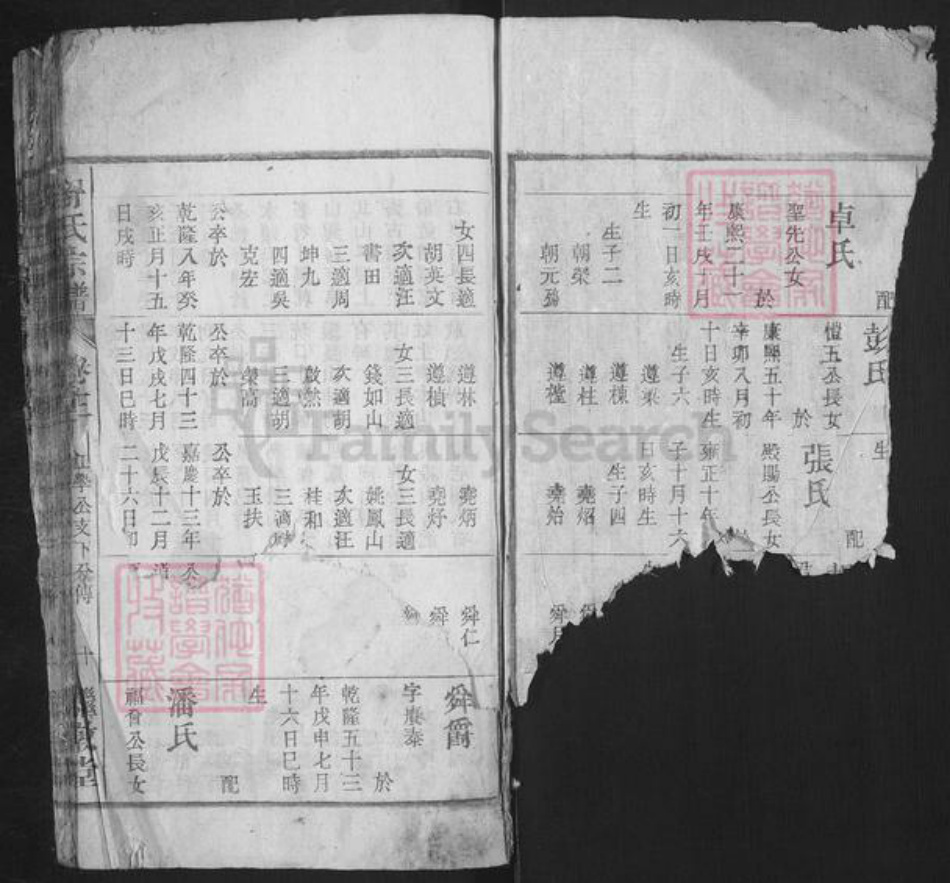 配
卓氏
聖先公女
於
康熙二十一
年壬戌十月
初一日亥時
生
生子二
朝榮
朝元殤
女四長適
胡英文
次適汪
書田
三適周
坤九
四適吳
克宏
公卒於
乾隆八年癸
亥正月十五
日戌時
彭氏
愷五公長女
於
康熙五十年
辛卯八月初
十日亥時生
生子六
遵榮
遵棟
遵柱
遵樘
遵林
遵楨
女三長適
錢如山
次適胡
啟然
三適胡
榮高
公卒於
乾隆四十三
年戊戌七月
十三日巳時
生
配
張氏
殿颺公長女
雍正十年
子十月十六
日亥時生
生子四
堯炤
堯始
堯炳
堯烀
女三長適
姚鳳山
次適汪
桂和
三適
玉扶
公卒於
嘉慶十三年
戊辰十二月
二十六日卯
舜仁
舜
舜爵
字賡泰
於
乾隆五十三
年戊申七月
十六日巳時
生
配
潘氏
福會公長女
氏宗譜
公支下分傳
十
堂
FamilySearch